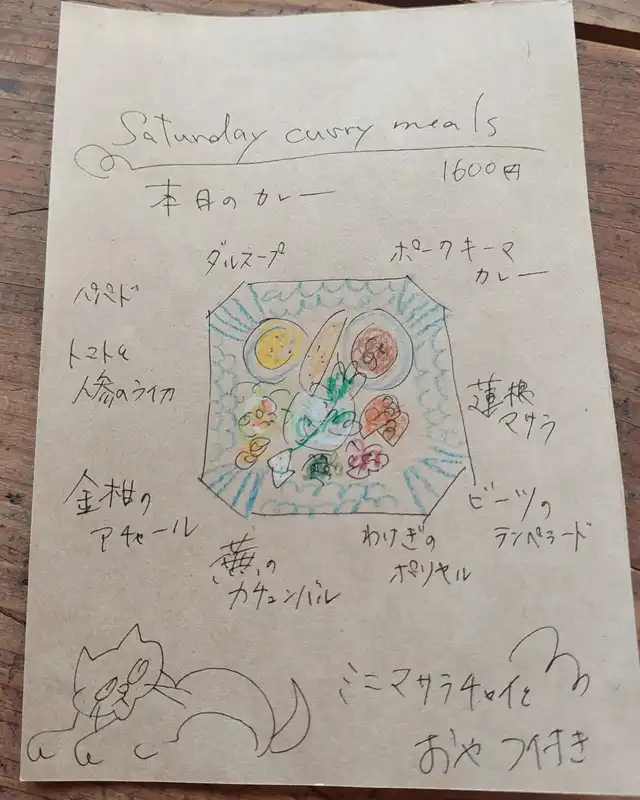 Saturday curry meals
1600円
本日のカレー
ダルスープ
ポークキーマ
カレー
パパド
トマトと
人参のライタ
蓮根
マサラ
金柑の
アチャール
ビーツの
テンペラード
蕪の
カチュンバル
わけぎの
ポリヤル
ミニマサラチャイと
おやつ付き